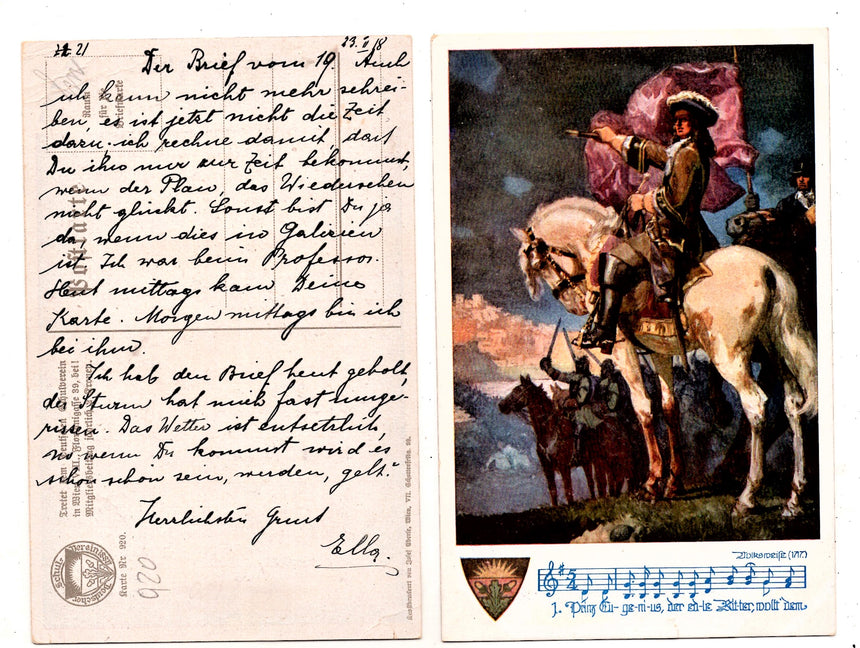 21
23. II 18
Der Brief vom 19 Auch
ich kann nicht mehr schrei-
ben, es ist jetzt nicht die Zeit
dazu, ich rechne damit, daß
Du ihn nur zur Zeit bekommst,
wenn der Plan, das Wiedersehen
nicht glückt. Sonst bist Du ja
da, wenn dies in Galizien
ist. Ich war beim Professor.
Heut mittags kam Deine
Karte. Morgen mittags bin ich
bei ihm.
Ich hab den Brief heut geholt,
der Sturm hat mich fast umge-
rissen. Das Wetter ist entsetzlich,
no wenn Du kommst wird es
schon schön sein, werden, gelt?
Herzlichsten Gruß
Ella.
Raum
für die
Briefmarke
Postkarte
Tretet dem Deutschen Schulverein
in Wien, VIII., Florianigasse 39, bei!
Karte Nr 920.
920
Deutscher Schul Verein 1880
Volksweise (1717)
1. Prinz Eu-ge-ni-us, der ed-le Rit-ter, wollt' dem